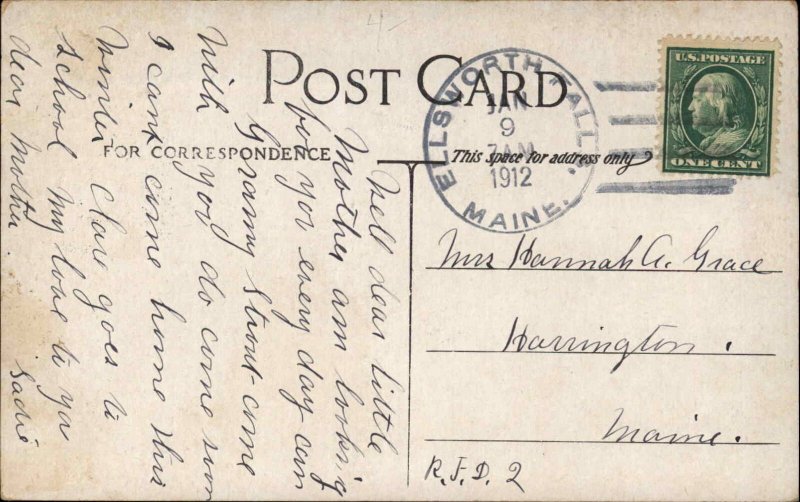 4/-
POST CARD
FOR CORRESPONDENCE
This space for address only
ELLSWORTH FALLS,
JAN
9
7AM
1912
MAINE.
U.S. POSTAGE
ONE CENT
Mrs Hannah A. Grace
Harrington.
Maine.
R.F.D. 2
Well dear little
Mother am looking
for you every day can
Granny Strout come
with you do come soon
I cant come home this
Winter Clare goes to
School My love to ya
dear Mother. Sadie